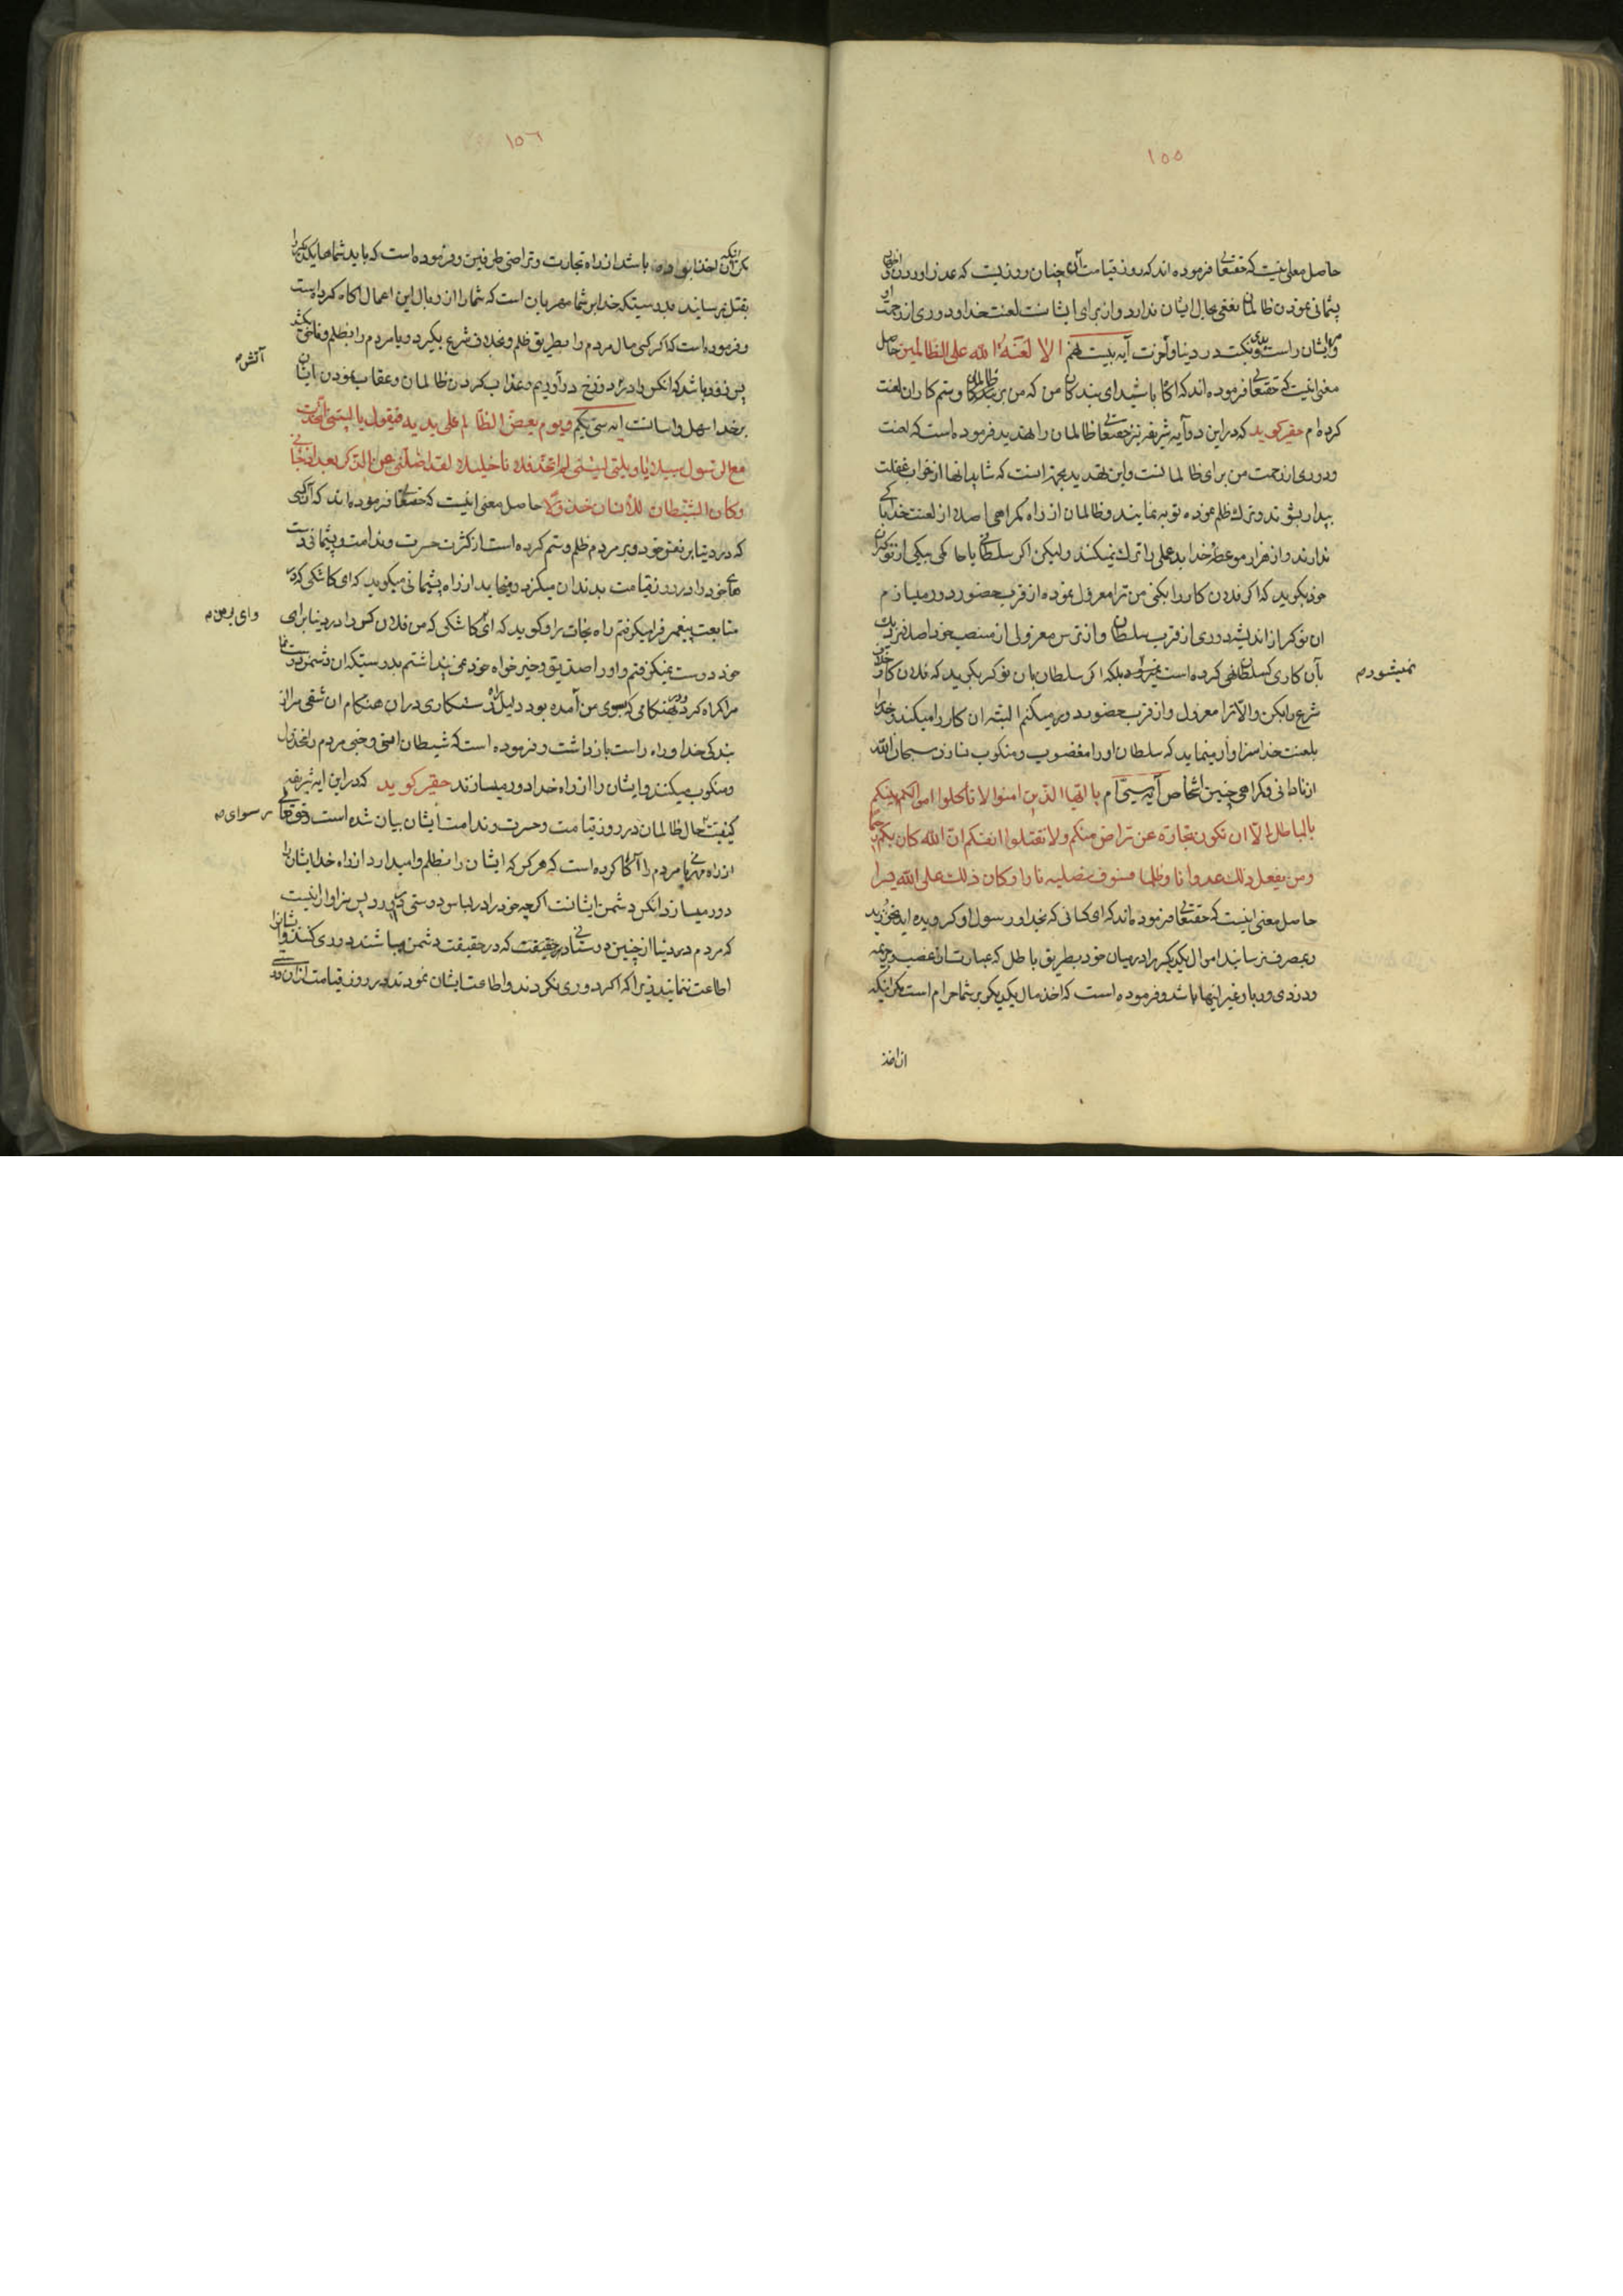 ١٥٥
حاصل معنی اینست که حقتعالی فرموده اند که روز قیامت آن چنان روزیست که عذر اوردن و اظهار
پشیمانی نمودن ظالمان نفعی بحال ایشان ندارد و از برای ایشانست لعنت خدا و دوری از رحمت او
و ایشان راست بدی و نکبت در دنیا و آخرت آیه بیست هم الا لعنة الله علی الظالمین حاصل
معنی اینست که حقتعالی فرموده اند که آگاه باشید ای بندگان من که من بر ظالمان و ستم کاران لعنت
کرده ام حقیر کوید که در این دو آیه شریفه نیز حقتعالی ظالمان را تهدید فرموده است که لعنت
و دوری از رحمت من برای ظالمانست و این تهدید بجهة آنست که شاید انها از خواب غفلت
بیدار شوند و ترک ظلم نموده توبه نمایند و ظالمان از راه کمراهی اصلا از لعنت خدا باکی
ندارند و از هزار موعظه خدا بد عملی را ترک نمیکنند و لیکن اکر سلطانی یا حاکمی بیکی از نوکران
خود بکوید که اکر فلان کار را بکنی من ترا معزول نموده از قرب حضور دور میسازم
ان نوکر از اندیشه دوری از قرب سلطان و از ترس معزولی از منصب خود اصلا نزدیک
بآن کاری که سلطان نهی کرده است نمیشود بلکه اکر سلطان بان نوکر بکوید که فلان کار خلاف
نمیشود م
شرع را بکن و الا ترا معزول و از قرب حضور دور میکنم البته ان کار را میکند و خود را
بلعنت خدا سزاوار مینماید که سلطان او را مغضوب و منکوب نسازد سبحان الله
از نادانی و کمراهی چنین اشخاص آیه سی ام یا ایها الذین امنوا لا تأکلوا اموالکم بینکم
بالباطل الا ان تکون تجارة عن تراض منکم و لا تقتلوا انفسکم ان الله کان بکم رحیما
و من یفعل ذلک عدوانا و ظلما فسوف نصلیه نارا و کان ذلک علی الله یسیرا
حاصل معنی اینست که حقتعالی فرموده اند که ای کسانی که بخدا و رسول او کرویده اید مخورید
و بمصرف نرسانید اموال یکدیکر را در میان خود بطریق باطل که عبارت از غصب و جریمه
و دزدی و ربا و غیر اینها باشد و فرموده است که اخذ مال یکدیکر بر شما حرام است مکر اینکه
ان اخذ
١٥٦
مکر اینکه ان اخذ باشد از راه تجارت و تراضی طرفین و فرموده است که باید شماها یکدیکر را
بقتل نرسانید بدرستیکه خدا بر شما مهربان است که شما را از وبال این اعمال اکاه کرده است
و فرموده است که اکر کسی مال مردم را بطریق ظلم و بخلاف شرع بکیرد و یا مردم را بظلم و ناحق بکشد
پس زود باشد که انکس را در دوزخ درآوریم و عذاب کردن ظالمان و عقاب نمودن ایشان
آتش م
بر خدا سهل و اسانست ایه سی یکم و یوم یعض الظالم علی یدیه فیقول یا لیتنی اتخذت
مع الرسول سبیلا یا ویلتی لیتنی لم اتخذ فلانا خلیلا لقد اضلنی عن الذکر بعد اذ جائنی
و کان الشیطان للانسان خذولا حاصل معنی اینست که حقتعالی فرموده اند که آن کسی
که در دنیا بر نفس خود و بر مردم ظلم و ستم کرده است از کثرت حسرت و ندامت و پشیمانی دست
های خود را در روز قیامت بدندان میکزد و میخاید از راه پشیمانی میکوید که ای کاشکی که در
متابعت پیغمبر فرا میکرفتم راه نجات را و کوید که ای کاشکی که من فلان کس را در دنیا برای
وای بر من م
خود دوست نمیکرفتم و او را صدیق و خیر خواه خود نمی پنداشتم بدرستیکه ان دشمن دوست نما
مرا کمراه کرد و در هنکامی که بسوی من آمده بود دلیل راه رستکاری در ان هنکام ان شقی مرا از
بندکی خدا و راه راست بازداشت و فرموده است که شیطان انسی و جنی مردم را مخذول
و منکوب میکنند و ایشان را از راه خدا دور میسازند حقیر کوید که در این ایه شریفه
کیفیت حال ظالمان در روز قیامت و حسرت و ندامت ایشان بیان شده است و حقتعالی
رسوای م
از راه مهربانی مردم را آکاه کرده است که هر کس که ایشان را بظلم وامیدارد از راه خدا ایشان را
دور میسازد انکس دشمن ایشانست اکرچه خود را در لباس دوستی در آورد پس سزاوار انست
که مردم در دنیا از چنین دوستانی که در حقیقت دشمن میباشند دوری کنند و ایشان را
اطاعت ننمایند زیرا که اکر دوری نکردند و اطاعت ایشان نمودند در روز قیامت از ان